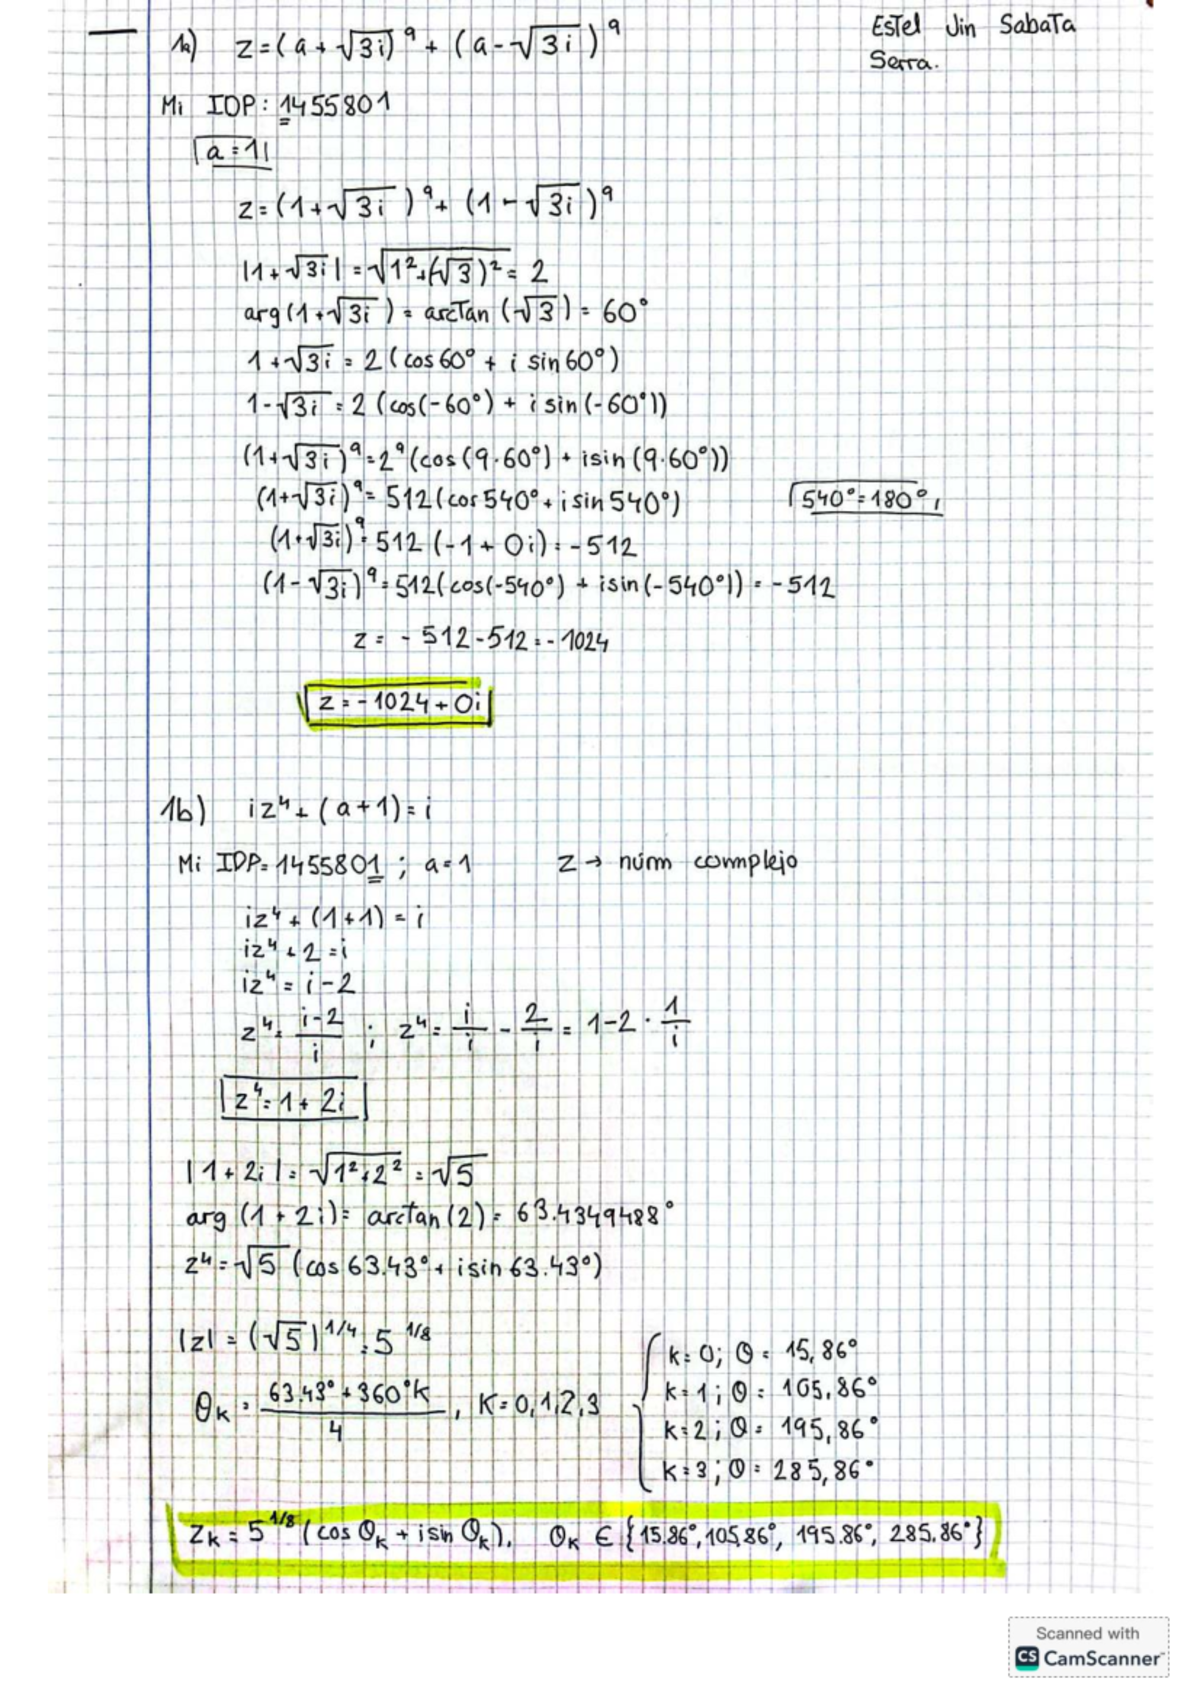 1a) z = (a + √3i)⁹ + (a - √3i)⁹
Estel Jin Sabata
Serra.
Mi IDP: 1455801
a = 1
z = (1 + √3i)⁹ + (1 - √3i)⁹
|1 + √3i| = √1² + (√3)² = 2
arg(1 + √3i) = arcTan (√3) = 60°
1 + √3i = 2 (cos 60° + i sin 60°)
1 - √3i = 2 (cos(-60°) + i sin(-60°))
(1 + √3i)⁹ = 2⁹ (cos (9·60°) + i sin (9·60°))
(1 + √3i)⁹ = 512 (cos 540° + i sin 540°) 540° = 180°
(1 + √3i)⁹ = 512 (-1 + 0i) = -512
(1 - √3i)⁹ = 512 (cos(-540°) + i sin(-540°)) = -512
z = - 512 - 512 = - 1024
z = - 1024 + 0i
1b) iz⁴ + (a + 1) = i
Mi IDP = 1455801 ; a = 1 z → núm complejo
iz⁴ + (1 + 1) = i
iz⁴ + 2 = i
iz⁴ = i - 2
z⁴ = (i - 2)/i ; z⁴ = i/i - 2/i = 1 - 2 · 1/i
z⁴ = 1 + 2i
|1 + 2i| = √1² + 2² = √5
arg (1 + 2i) = arctan (2) = 63.4349488°
z⁴ = √5 (cos 63.43° + i sin 63.43°)
|z| = (√5)^1/4 = 5^1/8
θk = (63.43° + 360°k)/4 , K = 0,1,2,3
k = 0; θ = 15,86°
k = 1; θ = 105,86°
k = 2; θ = 195,86°
k = 3; θ = 285,86°
Zk = 5^1/8 (cos θk + i sin θk), θk ∈ {15.86°, 105.86°, 195.86°, 285.86°}
Scanned with
CS CamScanner